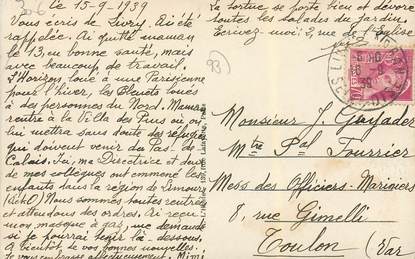 le 15-9-1939
Vous écris de Livry. Ai été
rappelée. Ai quitté maman
le 13, en bonne santé, mais
avec beaucoup de travail.
l'Horizon loué à une Parisienne
pour l'hiver, les Bleuets loués
à des personnes du Nord. Maman
rentre à la Villa des Pins où on
lui mettra sans doute des réfugiés
qui doivent venir des Pas-de-
Calais. Ici, ma Directrice et deux
de mes collègues ont emmené les
enfants dans la région de Limours
(S&O) Nous sommes toutes rentrées
et attendons des ordres. Ai reçu
mon masque à gaz, me demande
si je pourrai tenir là-dessous.
A bientôt de vos bonnes nouvelles.
Je vous embrasse affectueusement. Mimi
la tortue se porte bien et dévore
toutes les salades du jardin.
Ecrivez-moi 3, rue de l'Eglise
93
Monsieur J. Goyader
Mtre Pal Fourrier
Mess des Officiers-Mariniers
8, rue Gimelli
Toulon (Var